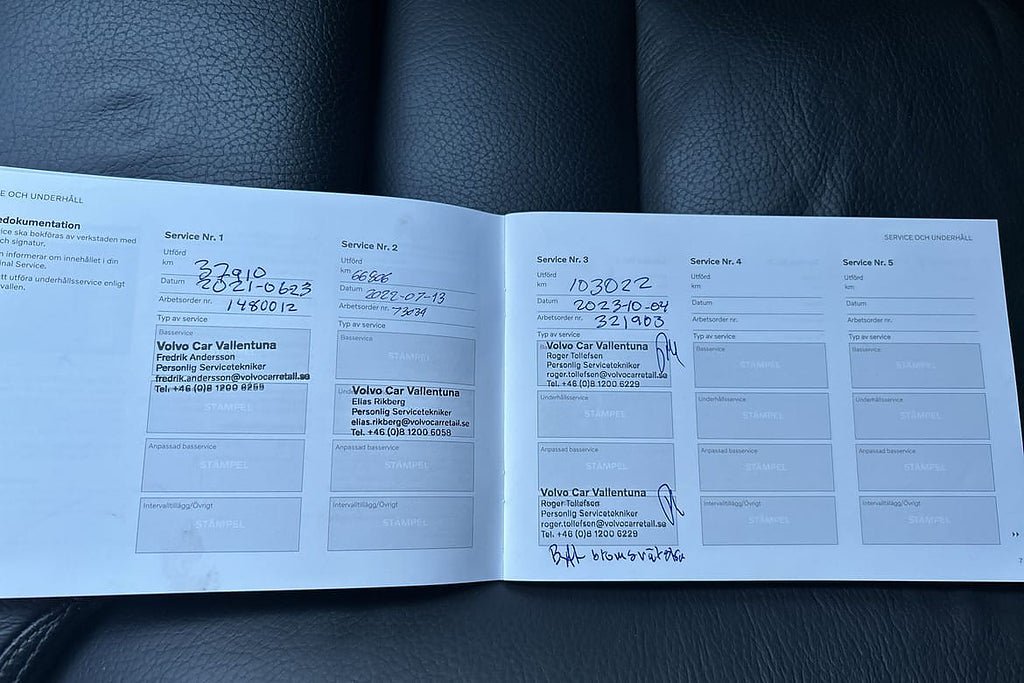 E OCH UNDERHÅLL
edokumentation
ice ska bokföras av verkstaden med
ch signatur.
n informerar om innehållet i din
inal Service.
tt utföra underhållsservice enligt
vallen.
Service Nr. 1
Utförd
km 37910
Datum 2021-0623
Arbetsorder nr. 1480012
Typ av service
Basservice
Volvo Car Vallentuna
Fredrik Andersson
Personlig Servicetekniker
fredrik.andersson@volvocarretail.se
Tel. +46 (0)8 1200
STÄMPEL
Anpassad basservice
STÄMPEL
Intervalltillägg/Övrigt
STÄMPEL
Service Nr. 2
Utförd
km 66806
Datum 2022-07-13
Arbetsorder nr. 73034
Typ av service
Basservice
STÄMPEL
Volvo Car Vallentuna
Elias Rikberg
Personlig Servicetekniker
elias.rikberg@volvocarretail.se
Tel. +46 (0)8 1200 6058
Anpassad basservice
STÄMPEL
Intervalltillägg/Övrigt
STÄMPEL
SERVICE OCH UNDERHÅLL
Service Nr. 3
Utförd
km 103022
Datum 2023-10-04
Arbetsorder nr. 321903
Typ av service
Volvo Car Vallentuna
Roger Tollefsen
Personlig Servicetekniker
roger.tollefsen@volvocarretail.se
Tel. +46 (0)8 1200 6229
Underhållsservice
STÄMPEL
Anpassad basservice
STÄMPEL
Volvo Car Vallentuna
Roger Tollefsen
Personlig Servicetekniker
roger.tollefsen@volvocarretail.se
Tel. +46 (0)8 1200 6229
bromsvätska
Service Nr. 4
Utförd
km
Datum
Arbetsorder nr.
Typ av service
Basservice
STÄMPEL
Underhållsservice
STÄMPEL
Anpassad basservice
STÄMPEL
Intervalltillägg/Övrigt
STÄMPEL
Service Nr. 5
Utförd
km
Datum
Arbetsorder nr.
Typ av service
Basservice
STÄMPEL
Underhållsservice
STÄMPEL
Anpassad basservice
STÄMPEL
Intervalltillägg/Övrigt
STÄMPEL
7